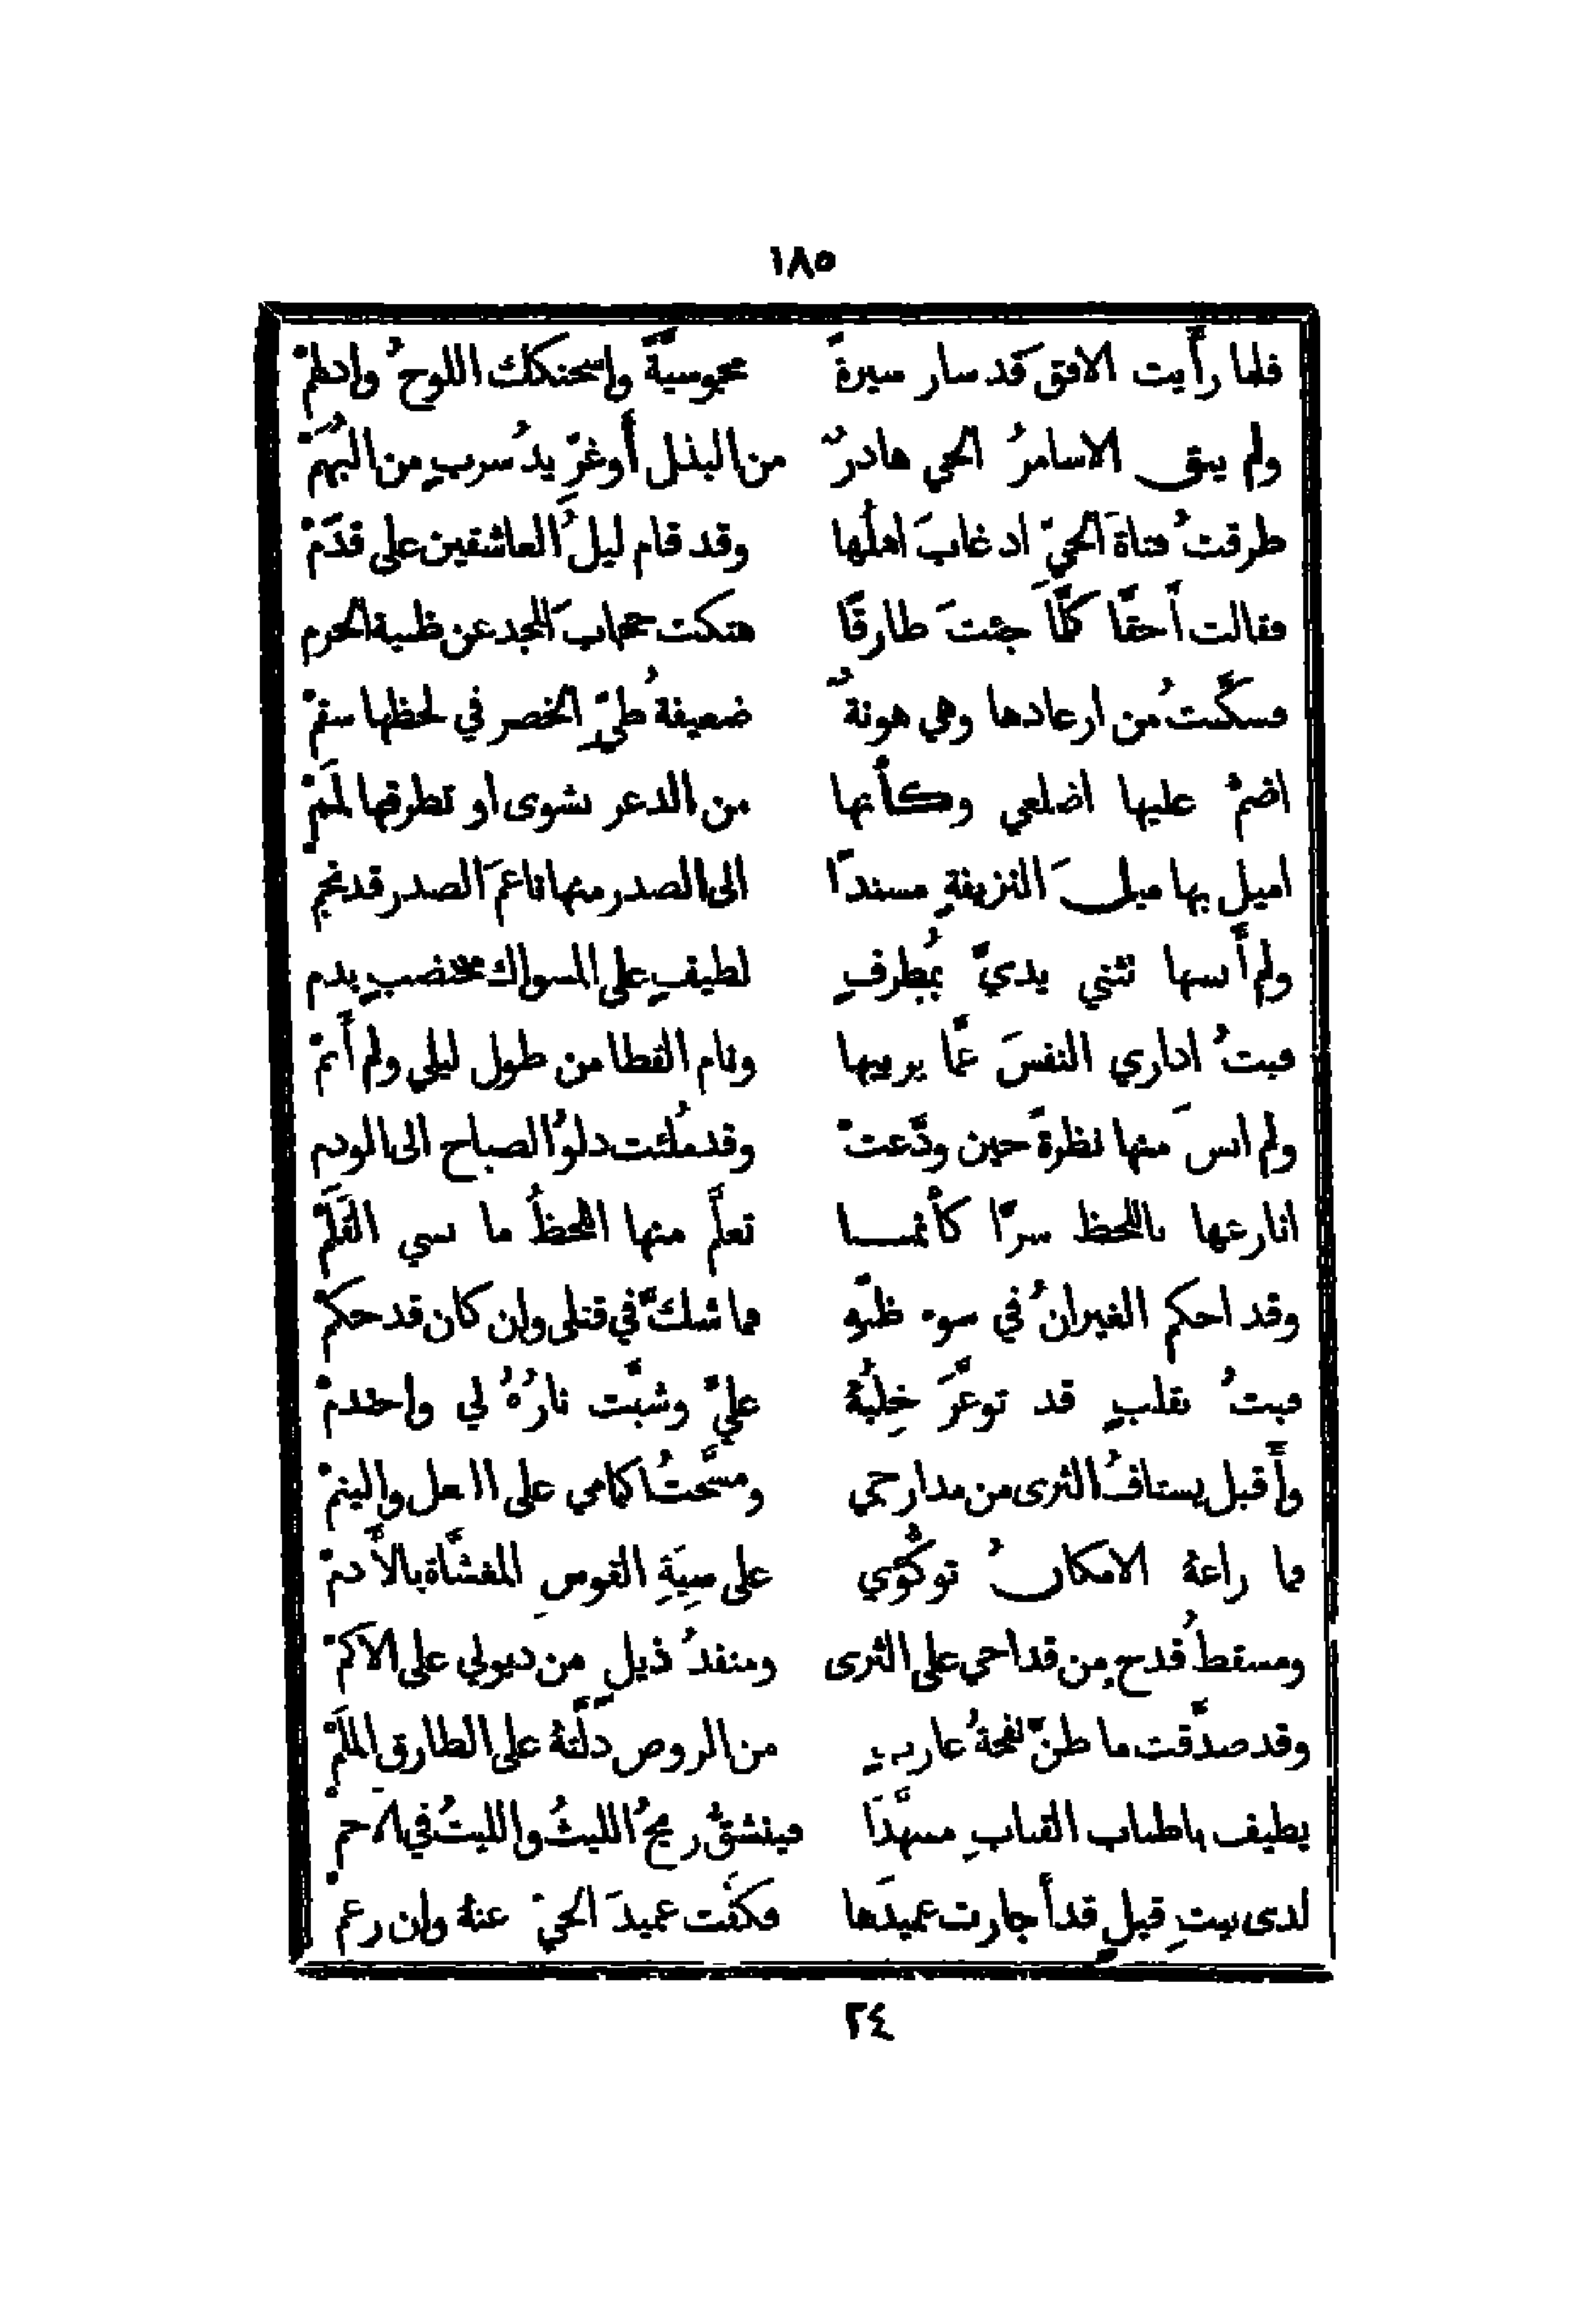 ١٨٥
فلما رأَيت الافق قد سار سيرةً مجوسيَّةً واسحنكك اللوحُ وادلهمْ
ولم يبق الاسامرُ الحي هادرٌ من البذل أَوغرِّيدُ سربٍ من البُهَمْ
طرقتُ فتاةَ الحيّ اذ غابَ اهلُها وقد قام ليلُ العاشقين على قدَمْ
فقالت أَحقًّا كلَّما جئتَ طارقًا هتكت حجابَ المجد عن ظبية الحرم
فسكَّنتُ من ارعادها وهي هونةٌ ضعيفةُ طيِّ الخصر في لحظها سقمْ
اضمُّ عليها اضلعي وكأَنها من الذعر نشوى او تطرقها لَمَمْ
اميل بها ميلَ النزيفةِ مسندًا الى الصدر منها ناعمَ الصدر قد نجمْ
ولم أَنسها تثني يديَّ بمُطرفٍ لطيفٍ على المسواك مختضبٍ بدم
فبتُ اداري النفسَ عمَّا يريبها ونام القطا من طول ليلي ولم أَنمْ
ولم انسَ منها نظرةً حين ودَّعتْ وقد مُلئت دلوُ الصباح الى الوذم
انازعها باللحظ سرّا كأَنمــا تعلَّم منها اللحظُ ما نسي القَلَمْ
وقد احكم الغيرانُ في سوء ظنّهِ فما شكَّ في قتلي وان كان قد حكمْ
فبتُ بقلبٍ قد توغَّرَ خِلبُهُ عليَّ وشبَّت نارُهُ لي واحتدمْ
وأَقبل يستافُ الثرى من مدارجي ومسَّحتُ اكمامي على الـعل والينمْ
فما راعهُ الامكانُ توكُّؤي على سِيَةِ القوسِ المغشَّاة بالأَدمْ
ومسقطُ قدحٍ من قداحي على الثرى ومنقدُّ ذيلٍ من ذيولي على الاكمْ
وقد صدَّقت ما ظنَّ نفحةُ عازبٍ من الروض دلَّتهُ على الطارق المُلمّْ
يطيف باطناب القبابِ مسهَّدًا فينشقُ ريحُ الليثُ والليثُ في الاجمْ
لدى بيتِ قيلٍ قد أَجارت عميدَها فكفَّت عميدَ الحيّ عنهُ وان رغمْ
٢٤